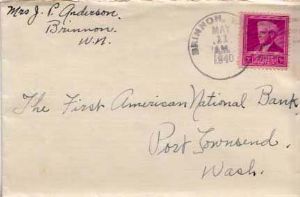 Mrs J. P. Anderson.
Brinnon.
Wn.
BRINNON,
MAY
11
A.M.
1940
The First American National Bank,
Port Townsend,
Wash.